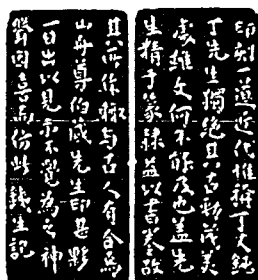 印刻一道近代惟稱丁丈鈍
丁先生獨絕其古勁茂美
處雖文何不能及也蓋先
生精于篆隸益以書卷故
其所作輒与古人有合焉
山舟尊伯藏先生印甚夥
一日出以見示不覺為之神
聳因喜而仿此鐵生記